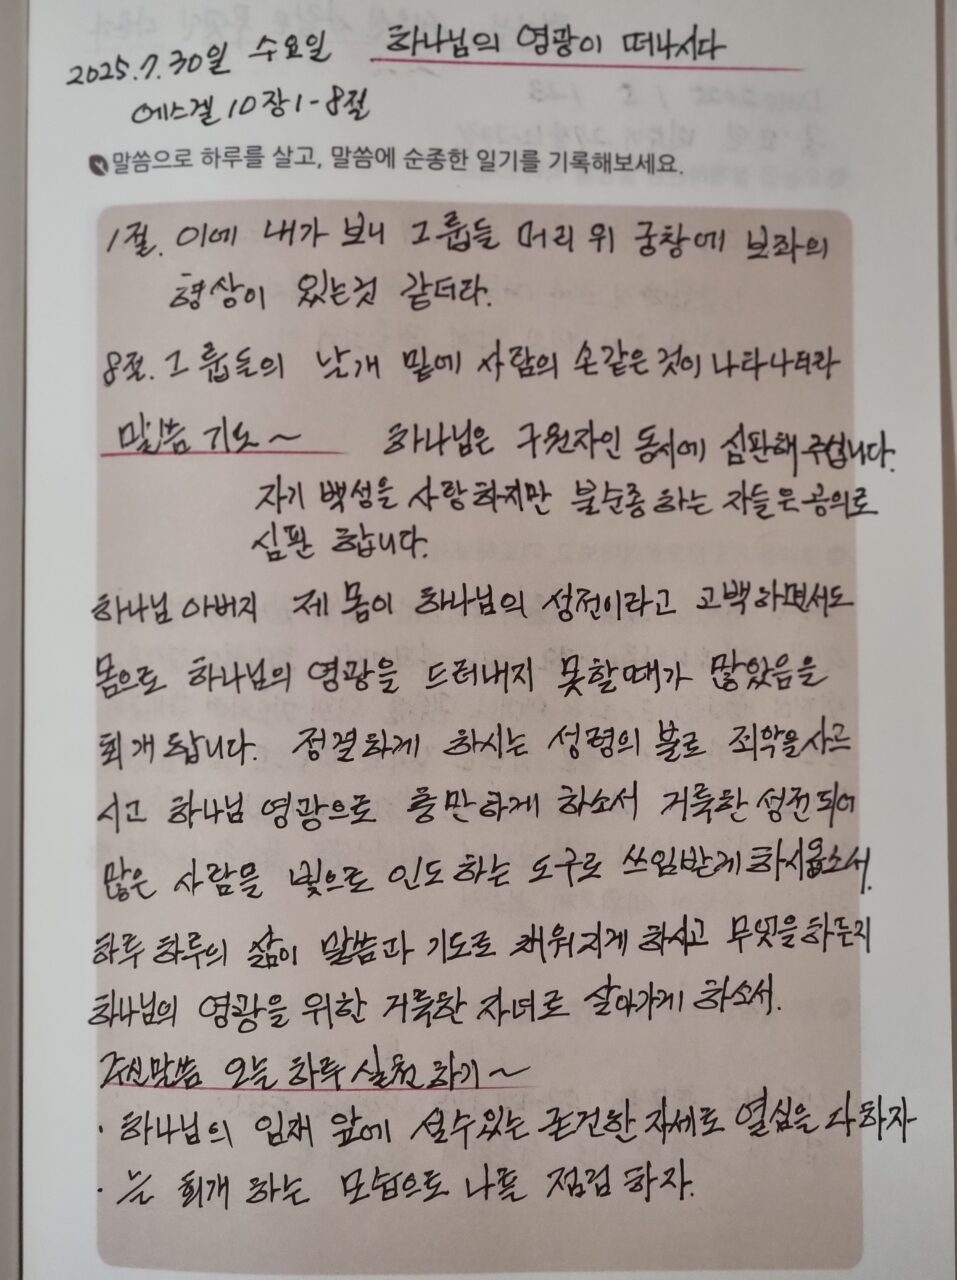 2025.7.30일 수요일 하나님의 영광이 떠나시다
에스겔 10장 1-8절
말씀으로 하루를 살고, 말씀에 순종한 일기를 기록해보세요.
1절. 이에 내가 보니 그룹들 머리 위 궁창에 보좌의
형상이 있는것 같더라.
8절. 그룹들의 날개 밑에 사람의 손같은 것이 나타나더라
말씀 기도~ 하나님은 구원자인 동시에 심판해 주십니다.
자기 백성을 사랑하지만 불순종하는 자들은 공의로
심판 합니다.
하나님 아버지 제 몸이 하나님의 성전이라고 고백하면서도
몸으로 하나님의 영광을 드러내지 못할때가 많았음을
회개 합니다. 정결하게 하시는 성령의 불로 죄악을 사르
시고 하나님 영광으로 충만하게 하소서 거룩한 성전되어
많은 사람을 빛으로 인도하는 도구로 쓰임받게 하시옵소서.
하루 하루의 삶이 말씀과 기도로 채워지게 하시고 무엇을하든지
하나님의 영광을 위한 거룩한 자녀로 살아가게 하소서.
주신말씀 오늘 하루 실천하기~
· 하나님의 임재 앞에 설수있는 온건한 자세로 열심을 다하자
· 늘 회개 하는 모습으로 나를 점검 하자.